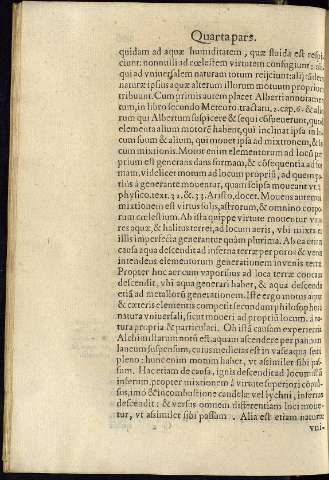 Quarta pars.
quidam ad aquæ humiditatem, quæ fluida est respi
ciunt: nonnulli ad cœlestem virtutem confugiunt:
qui ad vniuersalem naturam totum reijciunt: alij
naturæ ipsius aquæ alterum illorum motuum proprium
tribuunt. Cum primis autem placet Alberti
tum, in libro secundo Meteoro. tractatu, 2. cap. 6. & alio
rum qui Albertum suspicere & sequi cōsueuerunt, quod
elementa alium motorē habent, qui inclinat ipsa in lo
cum suum & alium, qui mouet ipsa ad mixtionem, & lo
cum mixtionis. Motor enim elementorum ad locū pro
prium est generans dans formam, & cōsequentia ad for
mam, videlicet motum ad locum propriū, ad quem po
tiùs à generante mouentur, quam seipsa moueant vt 2.
physico. text. 32. & 33. Aristo. docet. Mouens autem
mixtionem est virtus solis, astrorum, & omnino corpo
rum cœlestium. Ab ista quippe virtute mouentur
res aquæ, & halitus terrei, ad locum aeris, vbi mixta
illis imperfecta generantur quàm plurima. Ab ea etiam
causa aqua descendit ad infernā terræ per poros & venas
intendens elementorum generationem in venis terræ.
Propter hoc aer cum vaporibus ad loca terræ concaua
descendit, vbi aqua generari habet, & aqua descendit
etiā ad metallorū generationem. Iste ergo motus aquæ
& cæteris elementis competit secundum philosophos
natura vniuersali, sicut moueri ad propriū locum, à na
tura propria & particulari. Ob istā causam experientia
Alchimistarum notū est, aquam ascendere per pannum
laneum suspensum, cuius medietas est in vase aqua
pleno: hunc enim motum habet, vt assimilet sibi pas
sum. Hac etiam de causa, ignis descendit ad locum istū
infernum, propter mixtionem à virtute superiori cōpul
sus, imo & in combustione candelæ vel lychni, inferius
descendit: & versus omnem differentiam loci moue
tur, vt assimilet sibi passum. Alia est etiam naturæ
vni-